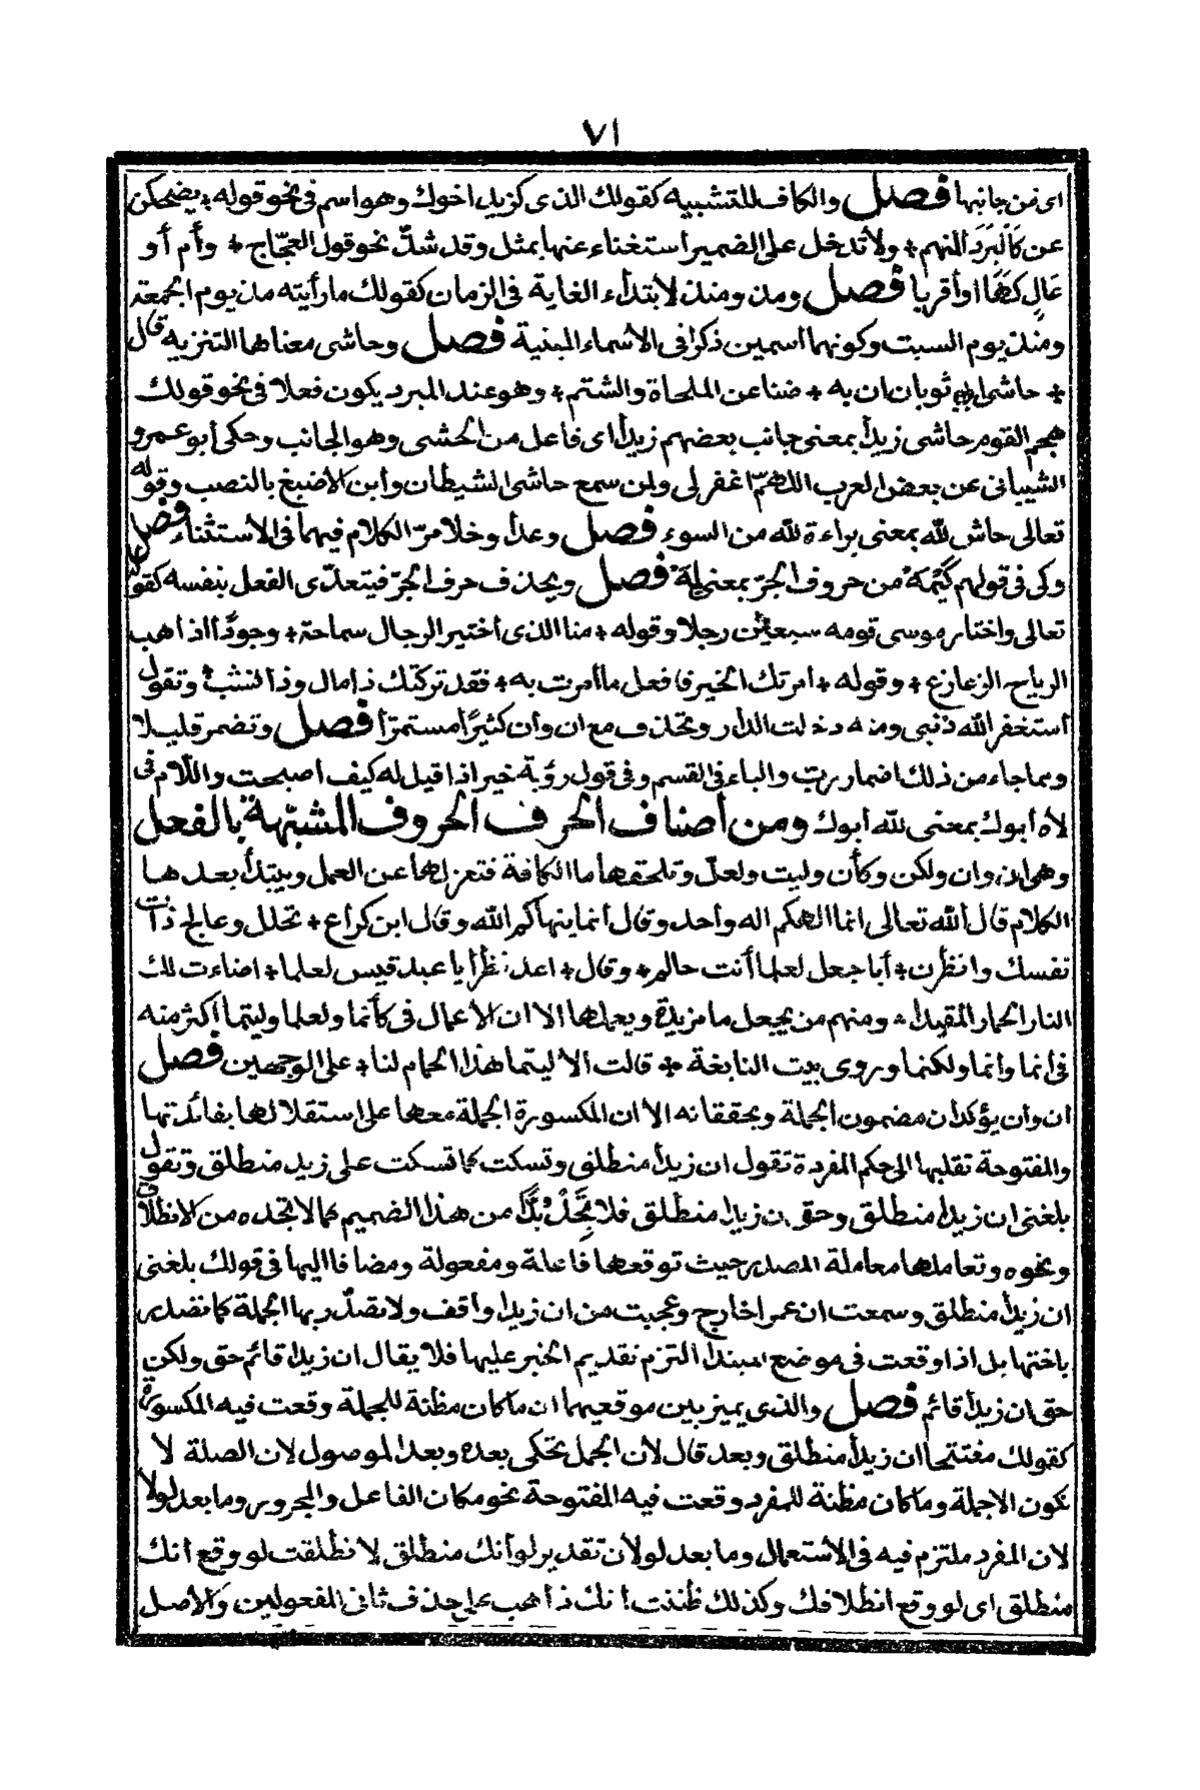 ٧١
اى من جانبها فصل والكاف للتشبيه كقولك الذى كزيد اخوك وهو اسم فى نحو قوله * يضحكن
عن كَالْبَرَدِ المنهم * ولا تدخل على الضمير استغناء عنها بمثل وقد شذّ نحو قول العجّاج * وأم أو
عَالِ كَهَا او أقربا فصل ومذ ومنذ لابتداء الغاية فى الزمان كقولك ما رأيته مذ يوم الجمعة
ومنذ يوم السبت وكونهما اسمين ذكر فى الأسماء المبنية فصل وحاشى معناها التنزيه قال
* حاشى ابى ثوبان ان به * ضنا عن الملحاة والشتم * وهو عند المبرد يكون فعلا فى نحو قولك
هجم القوم حاشى زيدا بمعنى جانب بعضهم زيدا اى فاعل من الحشى وهو الجانب وحكى أبو عمرو
الشيبانى عن بعض العرب اللهمّ اغفر لى ولمن سمع حاشى الشيطان وابن الأصبغ بالنصب وقوله
تعالى حاش لله بمعنى براءة لله من السوء فصل وعدا وخلا مرّ الكلام فيهما فى الأستثناء فصل
وكى فى قولهم كَيْمَهْ من حروف الجرّ بمعنى لِمَهْ فصل ويحذف حرف الجرّ فيتعدّى الفعل بنفسه كقوله
تعالى واختار موسى قومه سبعين رجلا وقوله * منا الذى اختير الرجال سماحة * وجودًا اذا هب
الرياح الزعازع * وقوله * امرتك الخير فافعل ما أمرت به * فقد تركتك ذا مال وذا نشب * وتقول
استغفر الله ذنبى ومنه دخلت الدار وتحذف مع ان وأن كثيرًا مستمرّا فصل وتضمر قليلا
ومما جاء من ذلك اضمار رب والباء فى القسم وفى قول رؤبة خير اذا قيل له كيف اصبحت واللام فى
لاه أبوك بمعنى لله أبوك ومن أصناف الحرف الحروف المشبّهة بالفعل
وهى ان وان ولكن وكأن وليت ولعلّ وتلحقها ما الكافة فتعزلها عن العمل ويبتدأ بعدها
الكلام قال الله تعالى انما الهكم اله واحد وقال أنما ينهاكم الله وقال ابن كراع * تحلل وعالج ذات
نفسك وانظرن * أبا جعل لعلما أنت حالم * وقال * اعد نظرا يا عبد قيس لعلما * اضاءت لك
النار الحمار المقيدا * ومنهم من يجعل ما مزيدة ويعملها الا ان الأعمال فى كأنما ولعلما وليتما أكثر منه
فى انما وانما ولكنما وروى بيت النابغة * قالت الا ليتما هذا الحمام لنا * على الوجهين فصل
ان وأن يؤكدان مضمون الجملة ويحققانه الا ان المكسورة الجملة معها على استقلالها بفائدتها
والمفتوحة تقلبها الى حكم المفرد ة تقول ان زيدا منطلق وتسكت كما تسكت على زيد منطلق وتقول
بلغنى ان زيدا منطلق وحق ان زيدا منطلق فلا تَجِدُ بُدًّا من هذا الضميم كما لا تجده من الانطلاق
ونحوه وتعاملها معاملة المصدر حيث توقعها فاعلة ومفعولة ومضافا اليها فى قولك بلغنى
ان زيدا منطلق وسمعت ان عمرا خارج وعجبت من ان زيدا واقف ولا تصدّر بها الجملة كما تصدر
باختها بل اذا وقعت فى موضع المبتدا التزم تقديم الخبر عليها فلا يقال ان زيدا قائم حق ولكن
حق ان زيدا قائم فصل والذى يميز بين موقعيهما ان ما كان مظنة للجملة وقعت فيه المكسورة
كقولك مفتتحا ان زيدا منطلق وبعد قال لأن الجمل تحكى بعده وبعد الموصول لان الصلة لا
تكون الا جملة وما كان مظنة للمفرد وقعت فيه المفتوحة نحو مكان الفاعل والمجرور وما بعد لولا
لان المفرد ملتزم فيه فى الأستعمال وما بعد لو لأن تقدير لو أنك منطلق لانطلقت لو وقع أنك
منطلق اى لو وقع انطلاقك وكذلك ظننت أنك ذاهب على حذف ثانى المفعولين والأصل